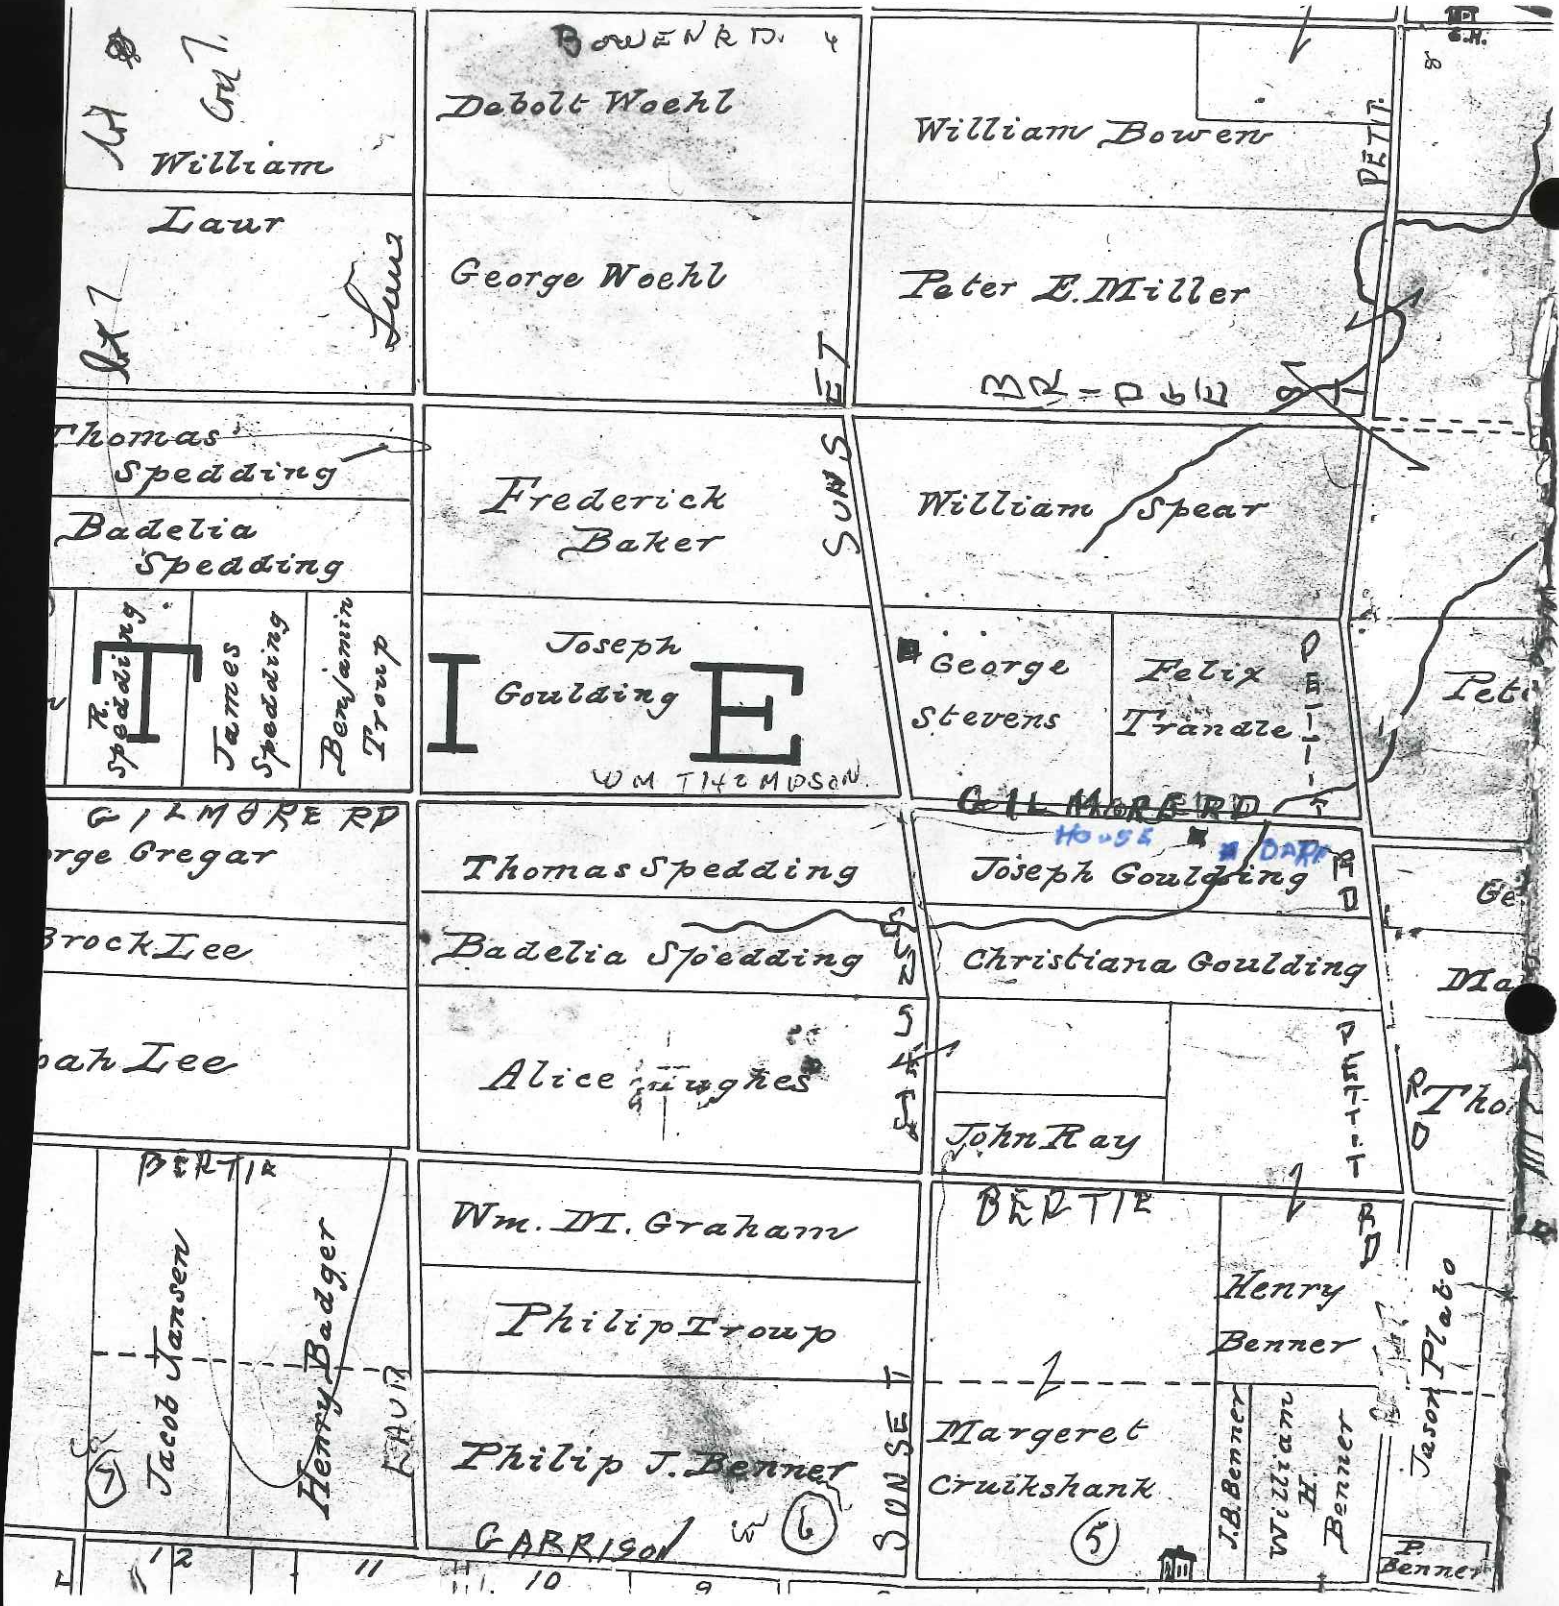 BOWEN RD.
S.H.
Lot 8
Con 7.
Debolt Woehl
William Bowen
PETIT
William
Laur
Lot 7
George Woehl
Peter E. Miller
SUNSET
BRIDGE ST
Thomas
Spedding
Frederick
Baker
William Spear
Badelia
Spedding
R.
Spedding
James
Spedding
Benjamin
Troup
T I E
Joseph
Goulding
George
Stevens
Felix
Trandle
PETTIT
Pet
WM THOMPSON
GILMORE RD
GILMORE RD
HOUSE
BARN
orge Gregar
Thomas Spedding
Joseph Goulding
RD
Ge
Brock Lee
Badelia Spedding
Christiana Goulding
Ma
SUNSET
oah Lee
Alice Hughes
John Ray
PETTIT
RD
Tho
BERTIE
BERTIE
RD
Jacob Jansen
Henry Badger
LAUR
Wm. M. Graham
Philip Troup
Philip J. Benner
SUNSET
Margeret
Cruikshank
Henry
Benner
J.B. Benner
William
H.
Benner
Jason Plato
P.
Benner
GARRISON
7
6
5
12
11
10
9